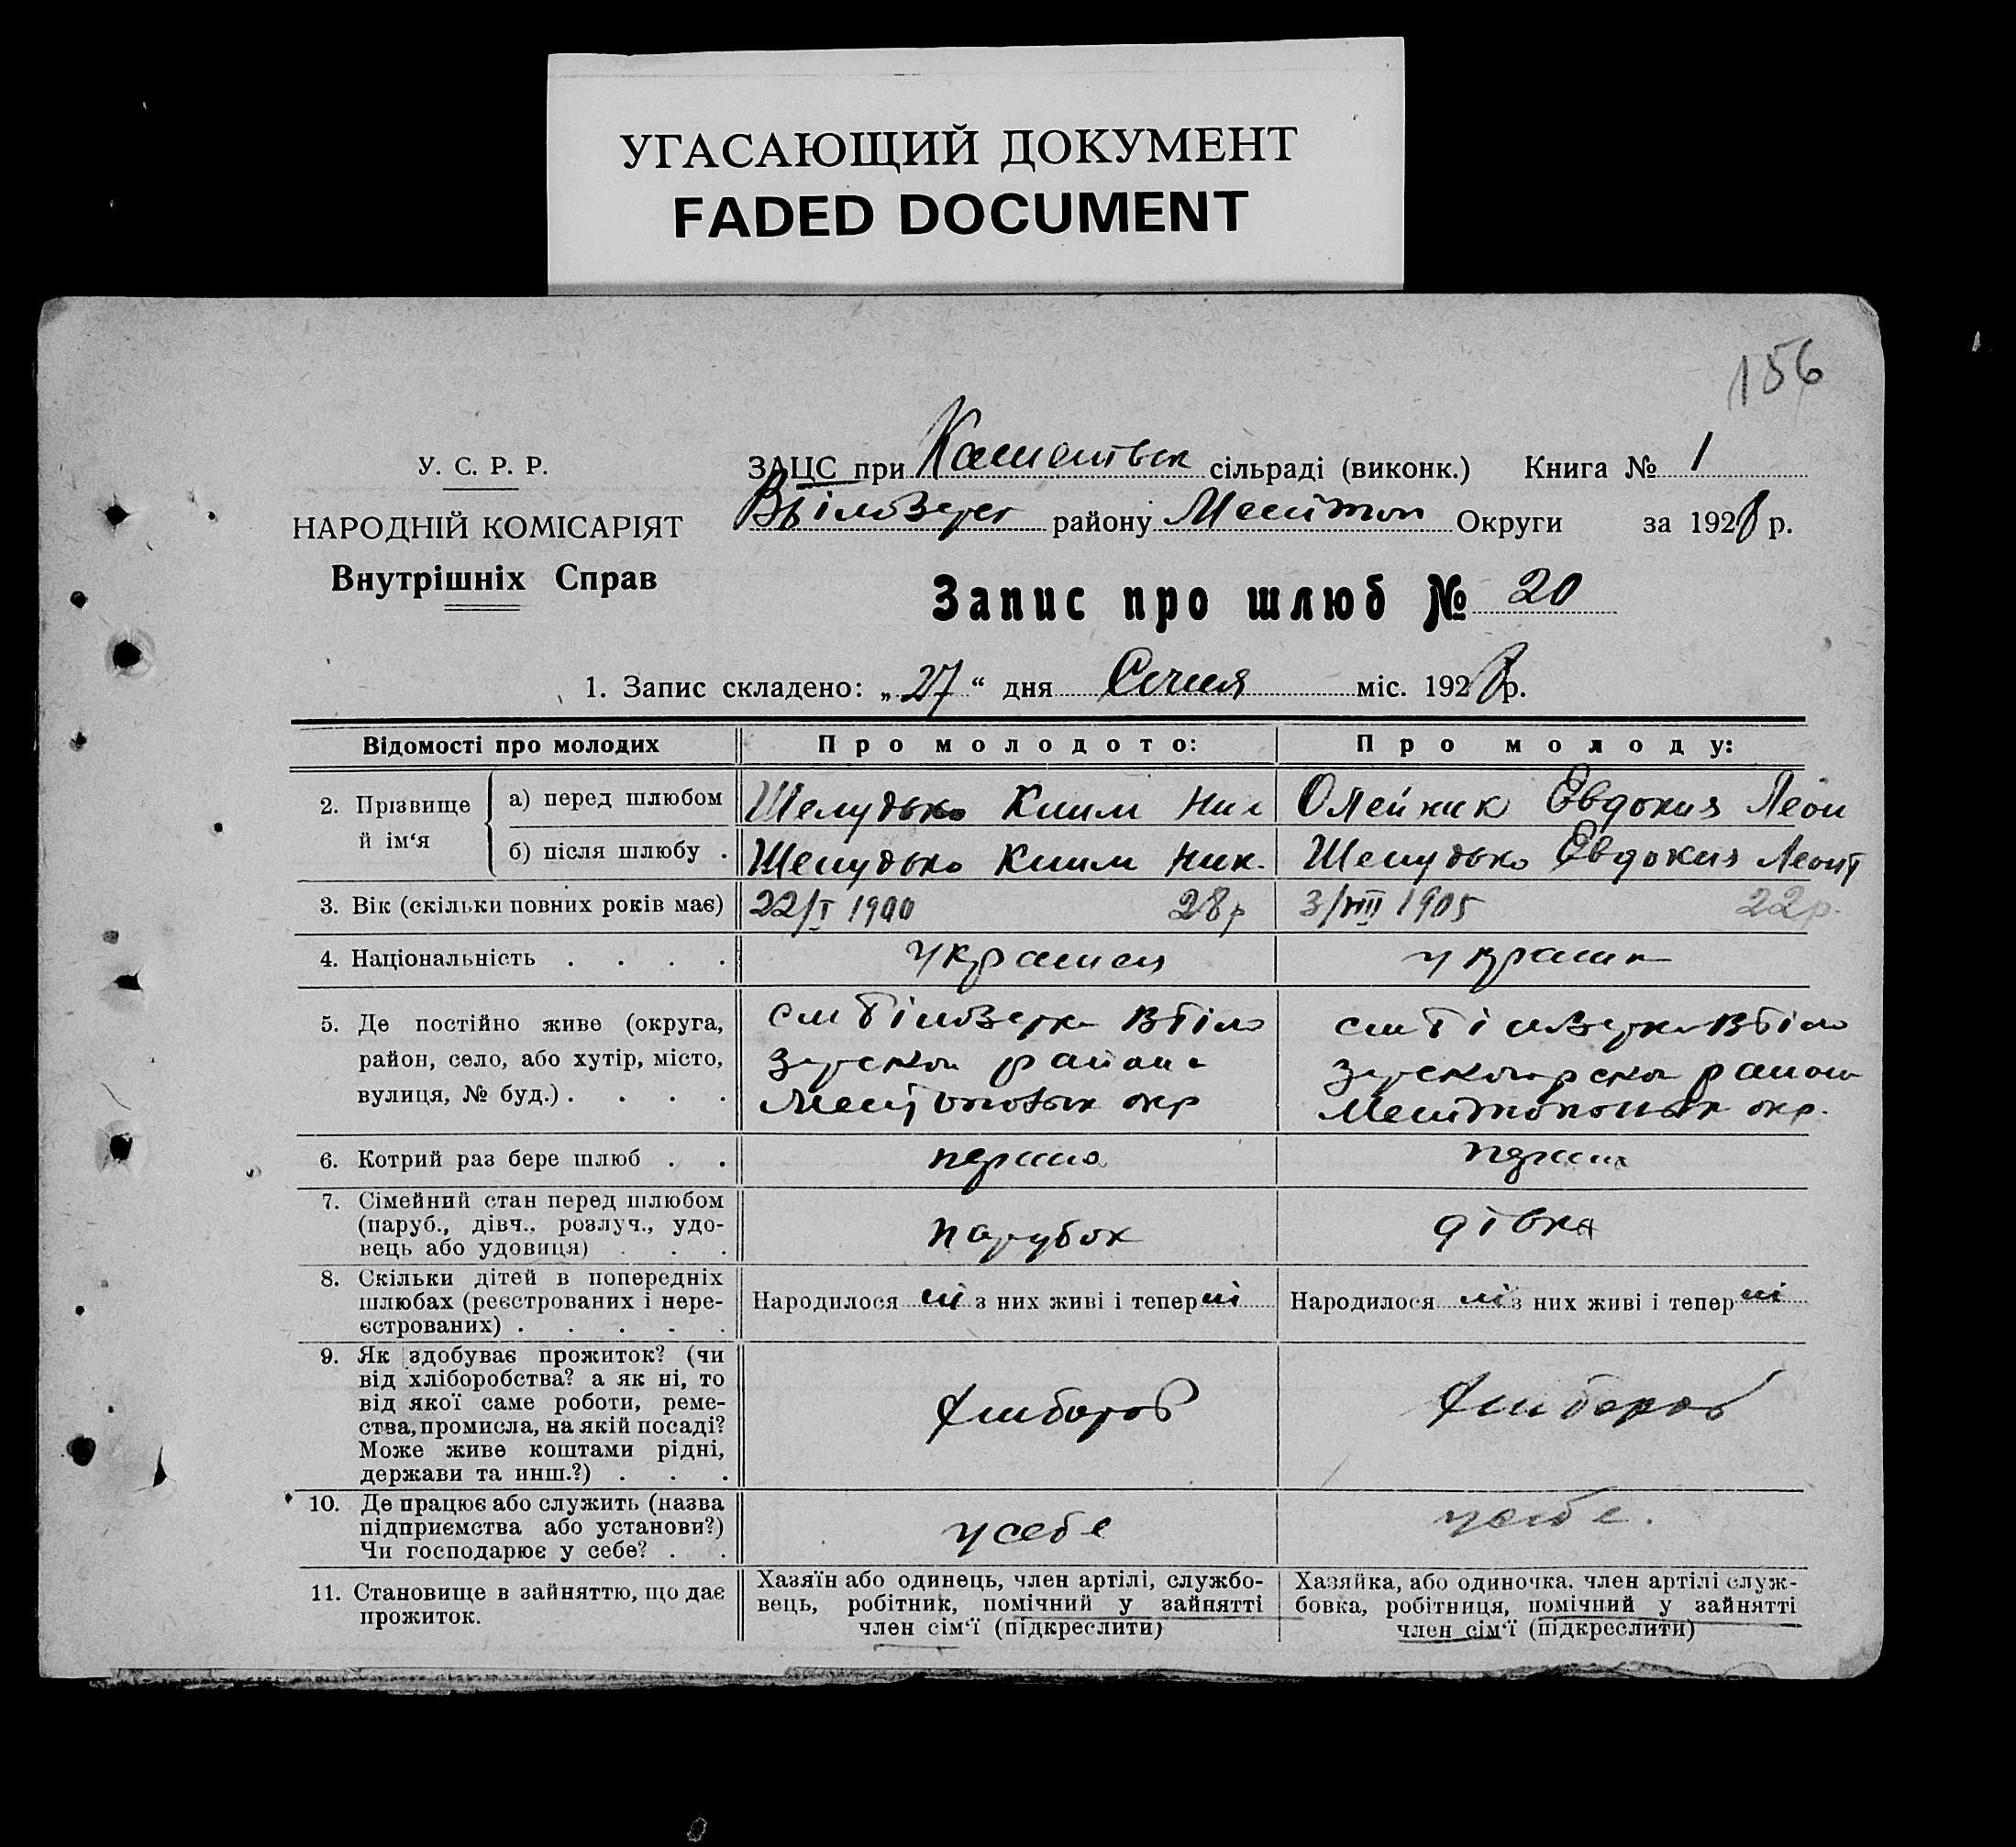 УГАСАЮЩИЙ ДОКУМЕНТ
FADED DOCUMENT
156
У. С. Р. Р.
НАРОДНІЙ КОМІСАРІЯТ
Внутрішніх Справ
ЗАЦС при сільраді (виконк.) Книга № 1
району Мелітоп Округи за 1928 р.
Запис про шлюб № 20
1. Запис складено: „27“ дня Січня міс. 1928 р.
Відомості про молодих
Про молодого:
Про молоду:
2. Прізвище й ім‘я
а) перед шлюбом
Шелудько Ник
Олейник Евдокия Леон
б) після шлюбу .
Шелудько Ник.
Шелудько Евдокия Леонт
3. Вік (скільки повних років має)
22/I 1900 28р
3/VIII 1905 22р.
4. Національність . . . .
5. Де постійно живе (округа, район, село, або хутір, місто, вулиця, № буд.) . . . .
района
окр
окр.
6. Котрий раз бере шлюб . .
7. Сімейний стан перед шлюбом (паруб., дівч., розлуч., удовець або удовиця) . . .
парубок
дівка
8. Скільки дітей в попередніх шлюбах (реєстрованих і нереєстрованих) . . . . .
Народилося ні з них живі і тепер ні
Народилося ні з них живі і тепер ні
9. Як здобуває прожиток? (чи від хліборобства? а як ні, то від якої саме роботи, ремества, промисла, на якій посаді? Може живе коштами рідні, держави та инш.?) . . .
10. Де працює або служить (назва підприємства або установи?) Чи господарює у себе? . .
у себе
у себе.
11. Становище в зайняттю, що дає прожиток.
Хазяїн або одинець, член артілі, службовець, робітник, помічний у зайнятті член сім‘ї (підкреслити)
Хазяйка, або одиночка, член артілі службовка, робітниця, помічний у зайнятті член сім‘ї (підкреслити)